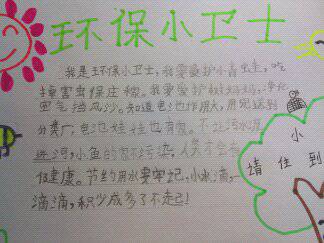 环保小卫士
我是环保小卫士，我要爱护小青蛙，吃
掉害虫保庄稼。我要爱护树妈妈，净化
空气挡风沙。知道电池作用大，用完送到
分类厂，电池娃娃也有家。不让污水流
进河，小鱼的家不污染，人类才会有
健康。节约用水要牢记，小水滴，一
滴滴，积少成多了不走己！
小
请住到